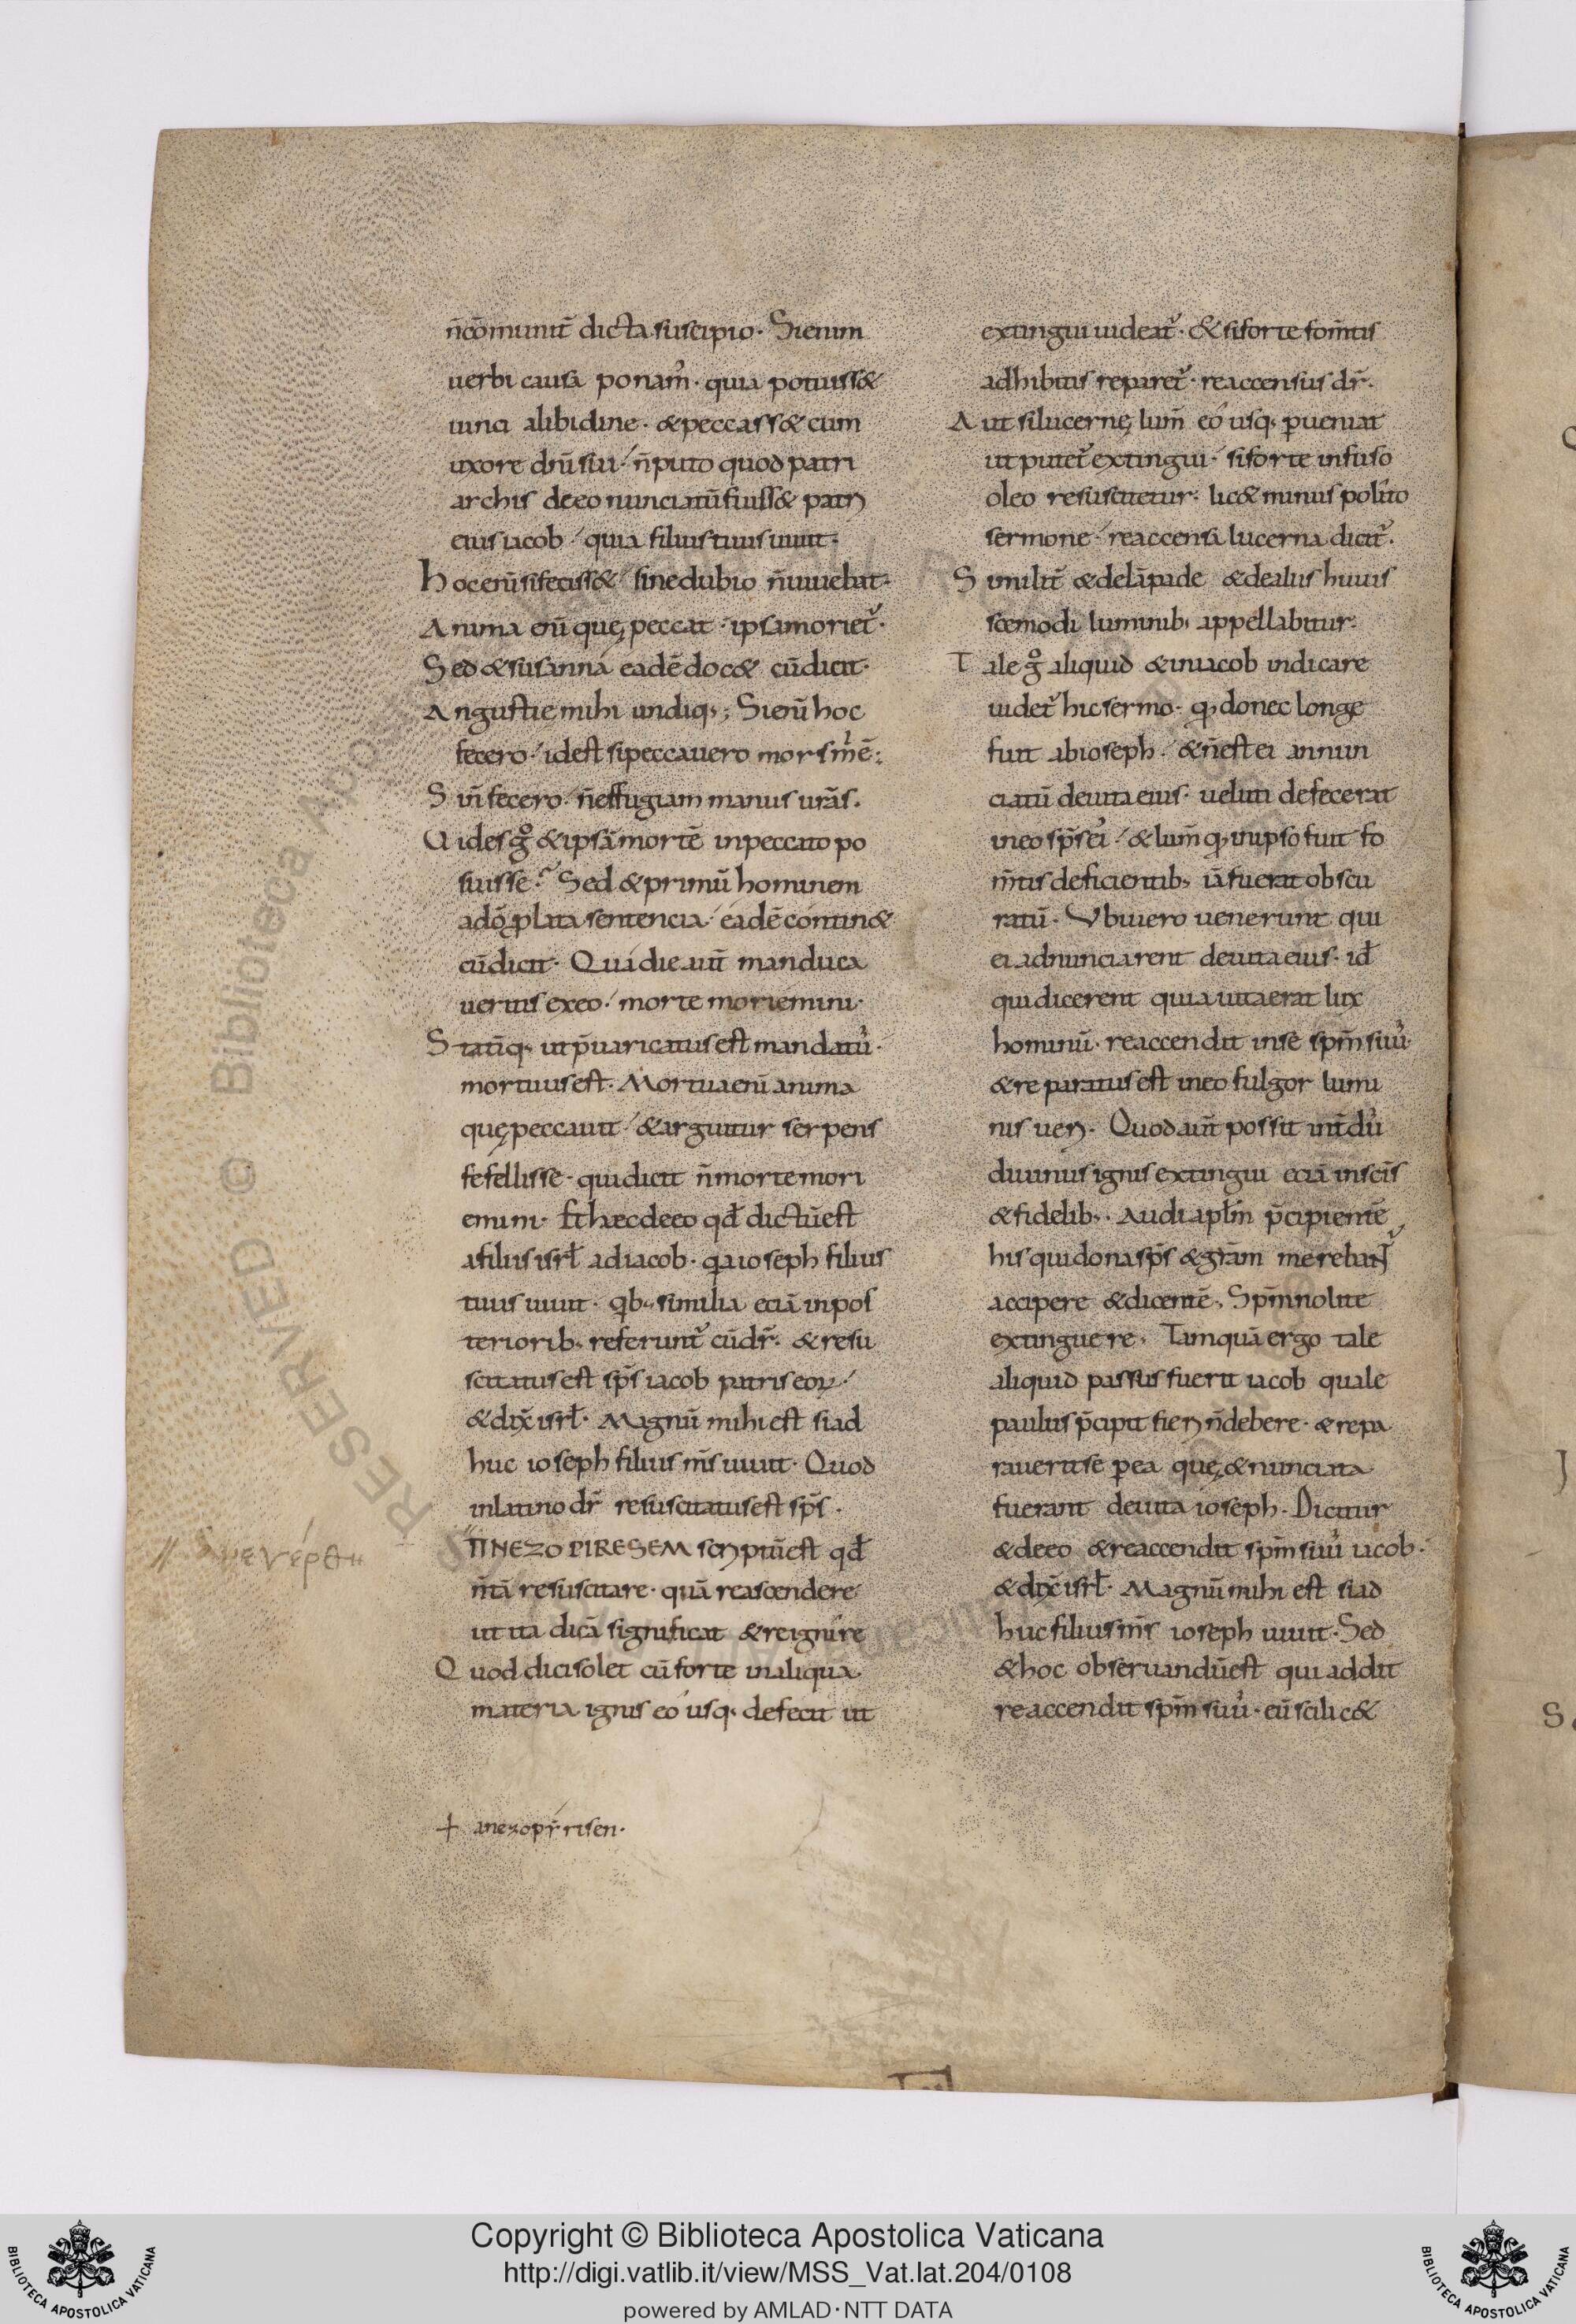 n̄cōmunit̄ dicta suscipio· Si enim
uerbi causa ponam̄· quia potuiss&
uinci alibidine· & peccass& cum
uxore dn̄i sui· n̄ puto quod patri
archis deeo nunciatū fuiss& patri
eius iacob· quia filius tuus uiuit·
hoc enī si feciss& sine dubio n̄ uiuebat·
Anima enī quę peccat· ipsa moriet̄·
Sed & susanna eadē doc& cū dicit·
Angustie mihi undiq;; Si enī hoc
fecero· id est si peccauero mors m̄ ē:
Sin̄ fecero· n̄ effugiam manus ur̄as.
Uides gͦ & ipsā mortē in peccato po
suisse? Sed & primū hominem
adō plata sentencia· eadē contin&
cū dicit· Qua die aut̄ manduca
ueritis ex eo· morte moriemini·
Statīq; ut p̄uaricatus est mandatū·
mortuus est· Mortua enī anima
quę peccauit· & arguitur serpens
fefellisse· qui dicit n̄ morte mori
emini· Et hæc deeo qđ dictū est
afiliis isrł ad iacob· qa ioseph filius
tuus uiuit· qb; similia eciā in pos
teriorib; referunt̄ cū dr̄· & resu
scitatus est sp̄s iacob patris eoꝝ·
& dix̄ isrł· Magnū mihi est si ad
huc ioseph filius m̄s uiuit· Quod
in latino dr̄ resuscitatus est sp̄s·
ΠNEZO PIRESEM scriptū est qđ
n̄ tā resuscitare· quā reascendere
ut ita dicā significat & reignire
Quod dici solet cū forte in aliqua
materia ignis eo usq; defecit ut
+ anezopyrisen·
extingui uideat̄· & si forte fom̄tis
adhibitis reparet̄· reaccensus dr̄·
Aut si lucernę lum̄ eo usq; pueniat
ut putet̄ extingui· si forte infuso
oleo resuscitetur: lic& minus polito
sermone· reaccensa lucerna dicit̄·
Similit̄ & de lāpade & de aliis huius
scemodi luminib; appellabitur·
Tale gͦ aliquid & in iacob indicare
uidet̄ hic sermo· qd donec longe
fuit abioseph· & n̄ est ei annun
ciatū de uita eius· ueluti defecerat
in eo sp̄s ei· & lum̄ qd in ipso fuit fo
m̄tis deficientib; iā fuerat obscu
ratū· Vbi uero uenerunt qui
ei adnunciarent de uita eius· id̄
qui dicerent quia uita erat lux
hominū· reaccendit in se sp̄m suū·
& reparatus est in eo fulgor lumi
nis ueri· Quod aut̄ possit int̄dū
diuinus ignis extingui eciā in scīs
& fidelib;· Audi apłm p̄cipientē
his qui dona sp̄s & gr̄am merebant̄
accipere & dicentē· Sp̄m nolite
extinguere· Tamquā ergo tale
aliquid passus fuerit iacob quale
paulus p̄cipit fieri n̄ debere· & repa
rauerit se pea quę & nunciata
fuerant de uita ioseph· Dicitur
& deeo & reaccendit sp̄m suū iacob·
& dix̄ isrł· Magnū mihi est si ad
huc filius m̄s ioseph uiuit· Sed
& hoc obseruandū est qui addit
reaccendit sp̄m suū· eū scilic&
RESERVED © Biblioteca Apostolica
BIBLIOTECA APOSTOLICA VATICANA
Copyright © Biblioteca Apostolica Vaticana
http://digi.vatlib.it/view/MSS_Vat.lat.204/0108
powered by AMLAD·NTT DATA
BIBLIOTECA APOSTOLICA VATICANA